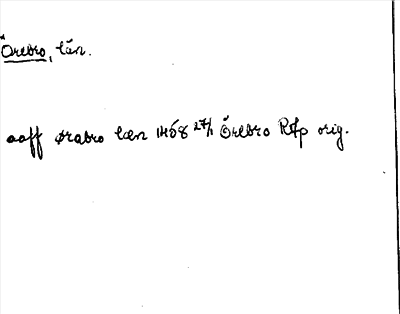 Örebro, län.
aaff ørabro læn 1458 27/1 Örebro RAp orig.